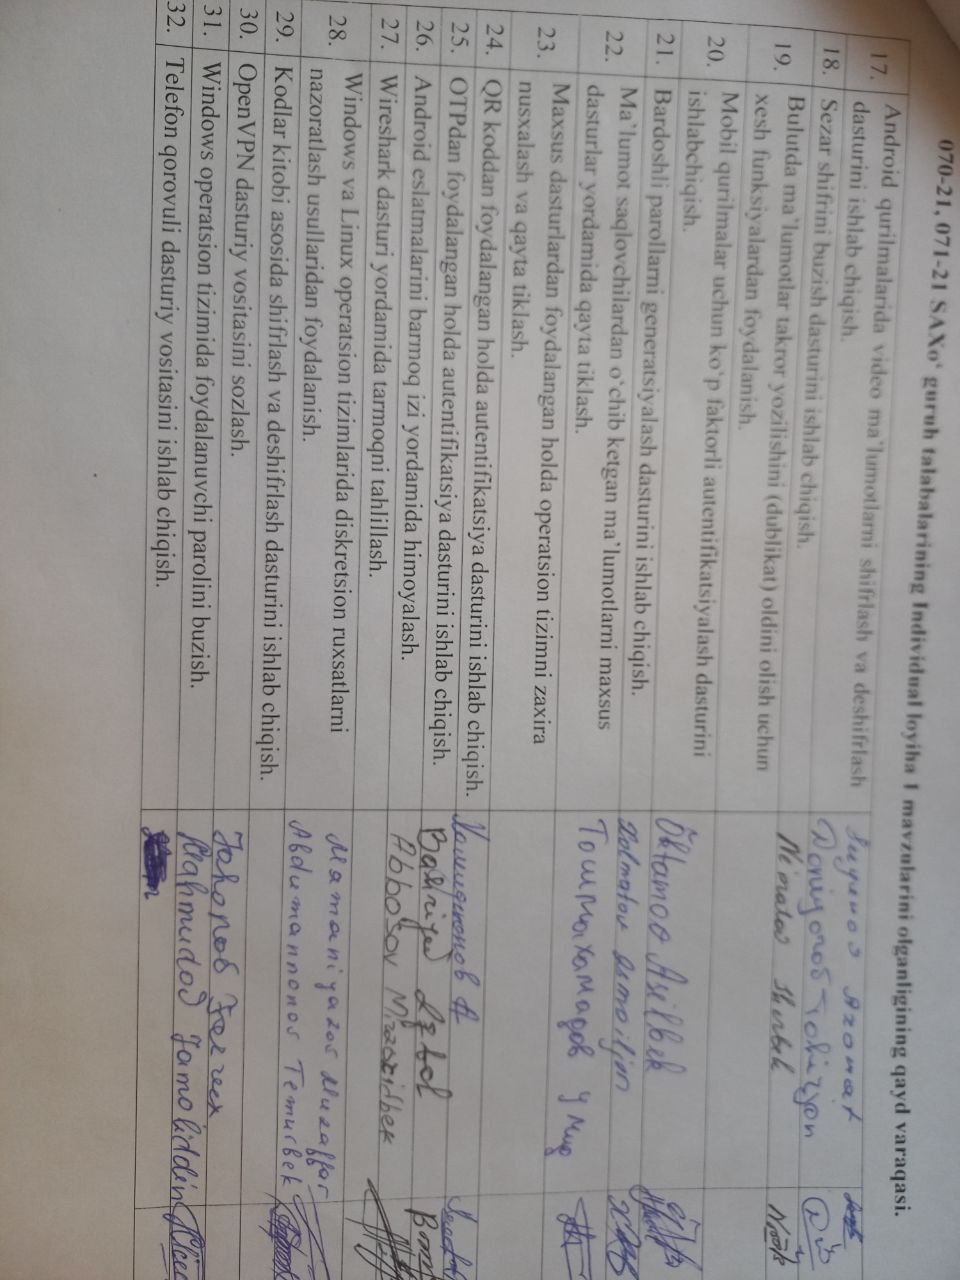 070-21, 071-21 SAXo‘ guruh talabalarining Individual loyiha 1 mavzularini olganligining qayd varaqasi.
17. Android qurilmalarida video ma’lumotlarni shifrlash va deshifrlash
dasturini ishlab chiqish.
18. Sezar shifrini buzish dasturini ishlab chiqish.
19. Bulutda ma’lumotlar takror yozilishini (dublikat) oldini olish uchun
xesh funksiyalardan foydalanish.
20. Mobil qurilmalar uchun ko‘p faktorli autentifikatsiyalash dasturini
ishlabchiqish.
21. Bardoshli parollarni generatsiyalash dasturini ishlab chiqish. Asilbek
22. Ma’lumot saqlovchilardan o‘chib ketgan ma’lumotlarni maxsus
dasturlar yordamida qayta tiklash.
23. Maxsus dasturlardan foydalangan holda operatsion tizimni zaxira
nusxalash va qayta tiklash.
24. QR koddan foydalangan holda autentifikatsiya dasturini ishlab chiqish.
25. OTPdan foydalangan holda autentifikatsiya dasturini ishlab chiqish.
26. Android eslatmalarini barmoq izi yordamida himoyalash.
27. Wireshark dasturi yordamida tarmoqni tahlillash. Abbosov
28. Windows va Linux operatsion tizimlarida diskretsion ruxsatlarni
nazoratlash usullaridan foydalanish. Mamaniyazov Muzaffar
29. Kodlar kitobi asosida shifrlash va deshifrlash dasturini ishlab chiqish. Abdumannonov Temurbek
30. OpenVPN dasturiy vositasini sozlash.
31. Windows operatsion tizimida foydalanuvchi parolini buzish.
32. Telefon qorovuli dasturiy vositasini ishlab chiqish. Mahmudov Jamoliddin